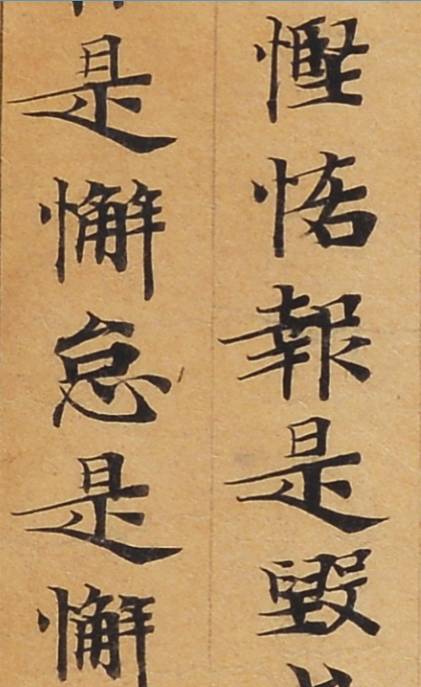 慳恡報是毀
是懈怠是懈